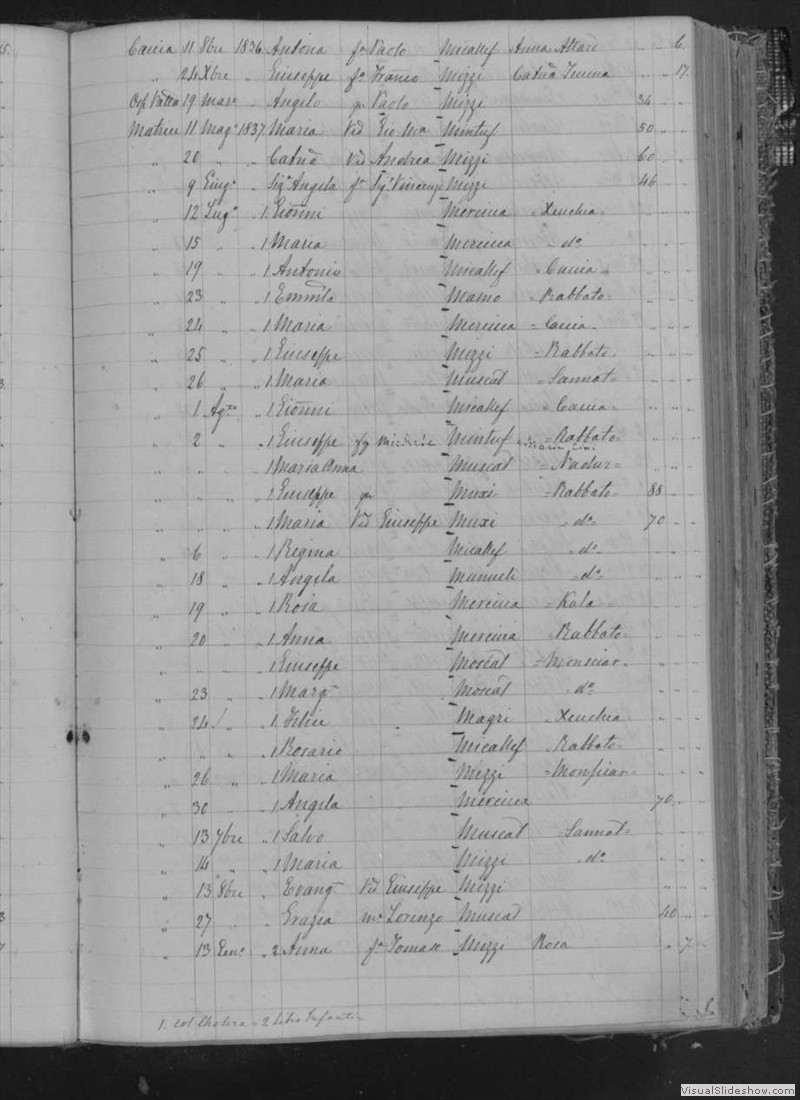 Caccia 11 8bre 1836 Antonia fa Paolo Micallef Anna Attard " " 6.
" 24 Xbre " Giuseppe fo Franco Mizzi Catna " " 17.
19 Mar " Angelo qu Paolo Mizzi 34 " "
Matrice 11 Mago 1837 Maria Vid Gio Ma Mintuf 50 " "
" 20 " " Catna Vid Andrea Mizzi 60 " "
" 9 Giugo " Siga Angela fa Sigr Vincenzo Mizzi 46 " "
" 12 Lugo " 1. Gionni Mercieca = Xeuchia =
" 15 " " 1 Maria Mercieca = do
" 19 " " 1 Antonio Micallef = Caccia =
" 23 " " 1 Emmle Mamo = Rabbato =
" 24 " " 1 Maria Mercieca = Caccia =
" 25 " " 1 Giuseppe Mizzi = Rabbato
" 26 " " 1 Maria Muscat = Sannat =
" 1 Agto " 1 Gionni Micallef = Caccia =
" 2 " " 1 Giuseppe Mintuf = Rabbato =
" " " " 1 Maria Anna Muscat = Nadur =
" " " " 1 Giuseppe qu Muxi = Rabbato = 88 " "
" " " " 1 Maria Vid Giuseppe Muxi = do 70 " "
" 6 " " 1 Regina Micallef = do
" 18 " " 1 Angela Mamueli = do
" 19 " " 1 Rosa Mercieca = Kala =
" 20 " " 1 Anna Mercieca = Rabbato =
" " " " 1 Giuseppe Moscat = Monsciar =
" 23 " " 1 Marg Moscat = do
" 24 " " 1 Felice Magri = Xeuchia =
" " " " 1 Rosario Micallef = Rabbato =
" 26 " " 1 Maria Mizzi = Monsciar =
" 30 " " 1 Angela Mercieca 70 " "
" 13 7bre " 1 Salvo Muscat = Sannat =
" 14 " " 1 Maria Mizzi = do
" 13 8bre " Evang Vid Giuseppe Mizzi
" 27 " " Grazia ma Lorenzo Muscat 40 " "
" 13 Geno " 2 Anna fa Tomaso Mizzi Rosa " 7 "
1. col Cholera = 2 Libro Infanti =
VisualSlideshow.com